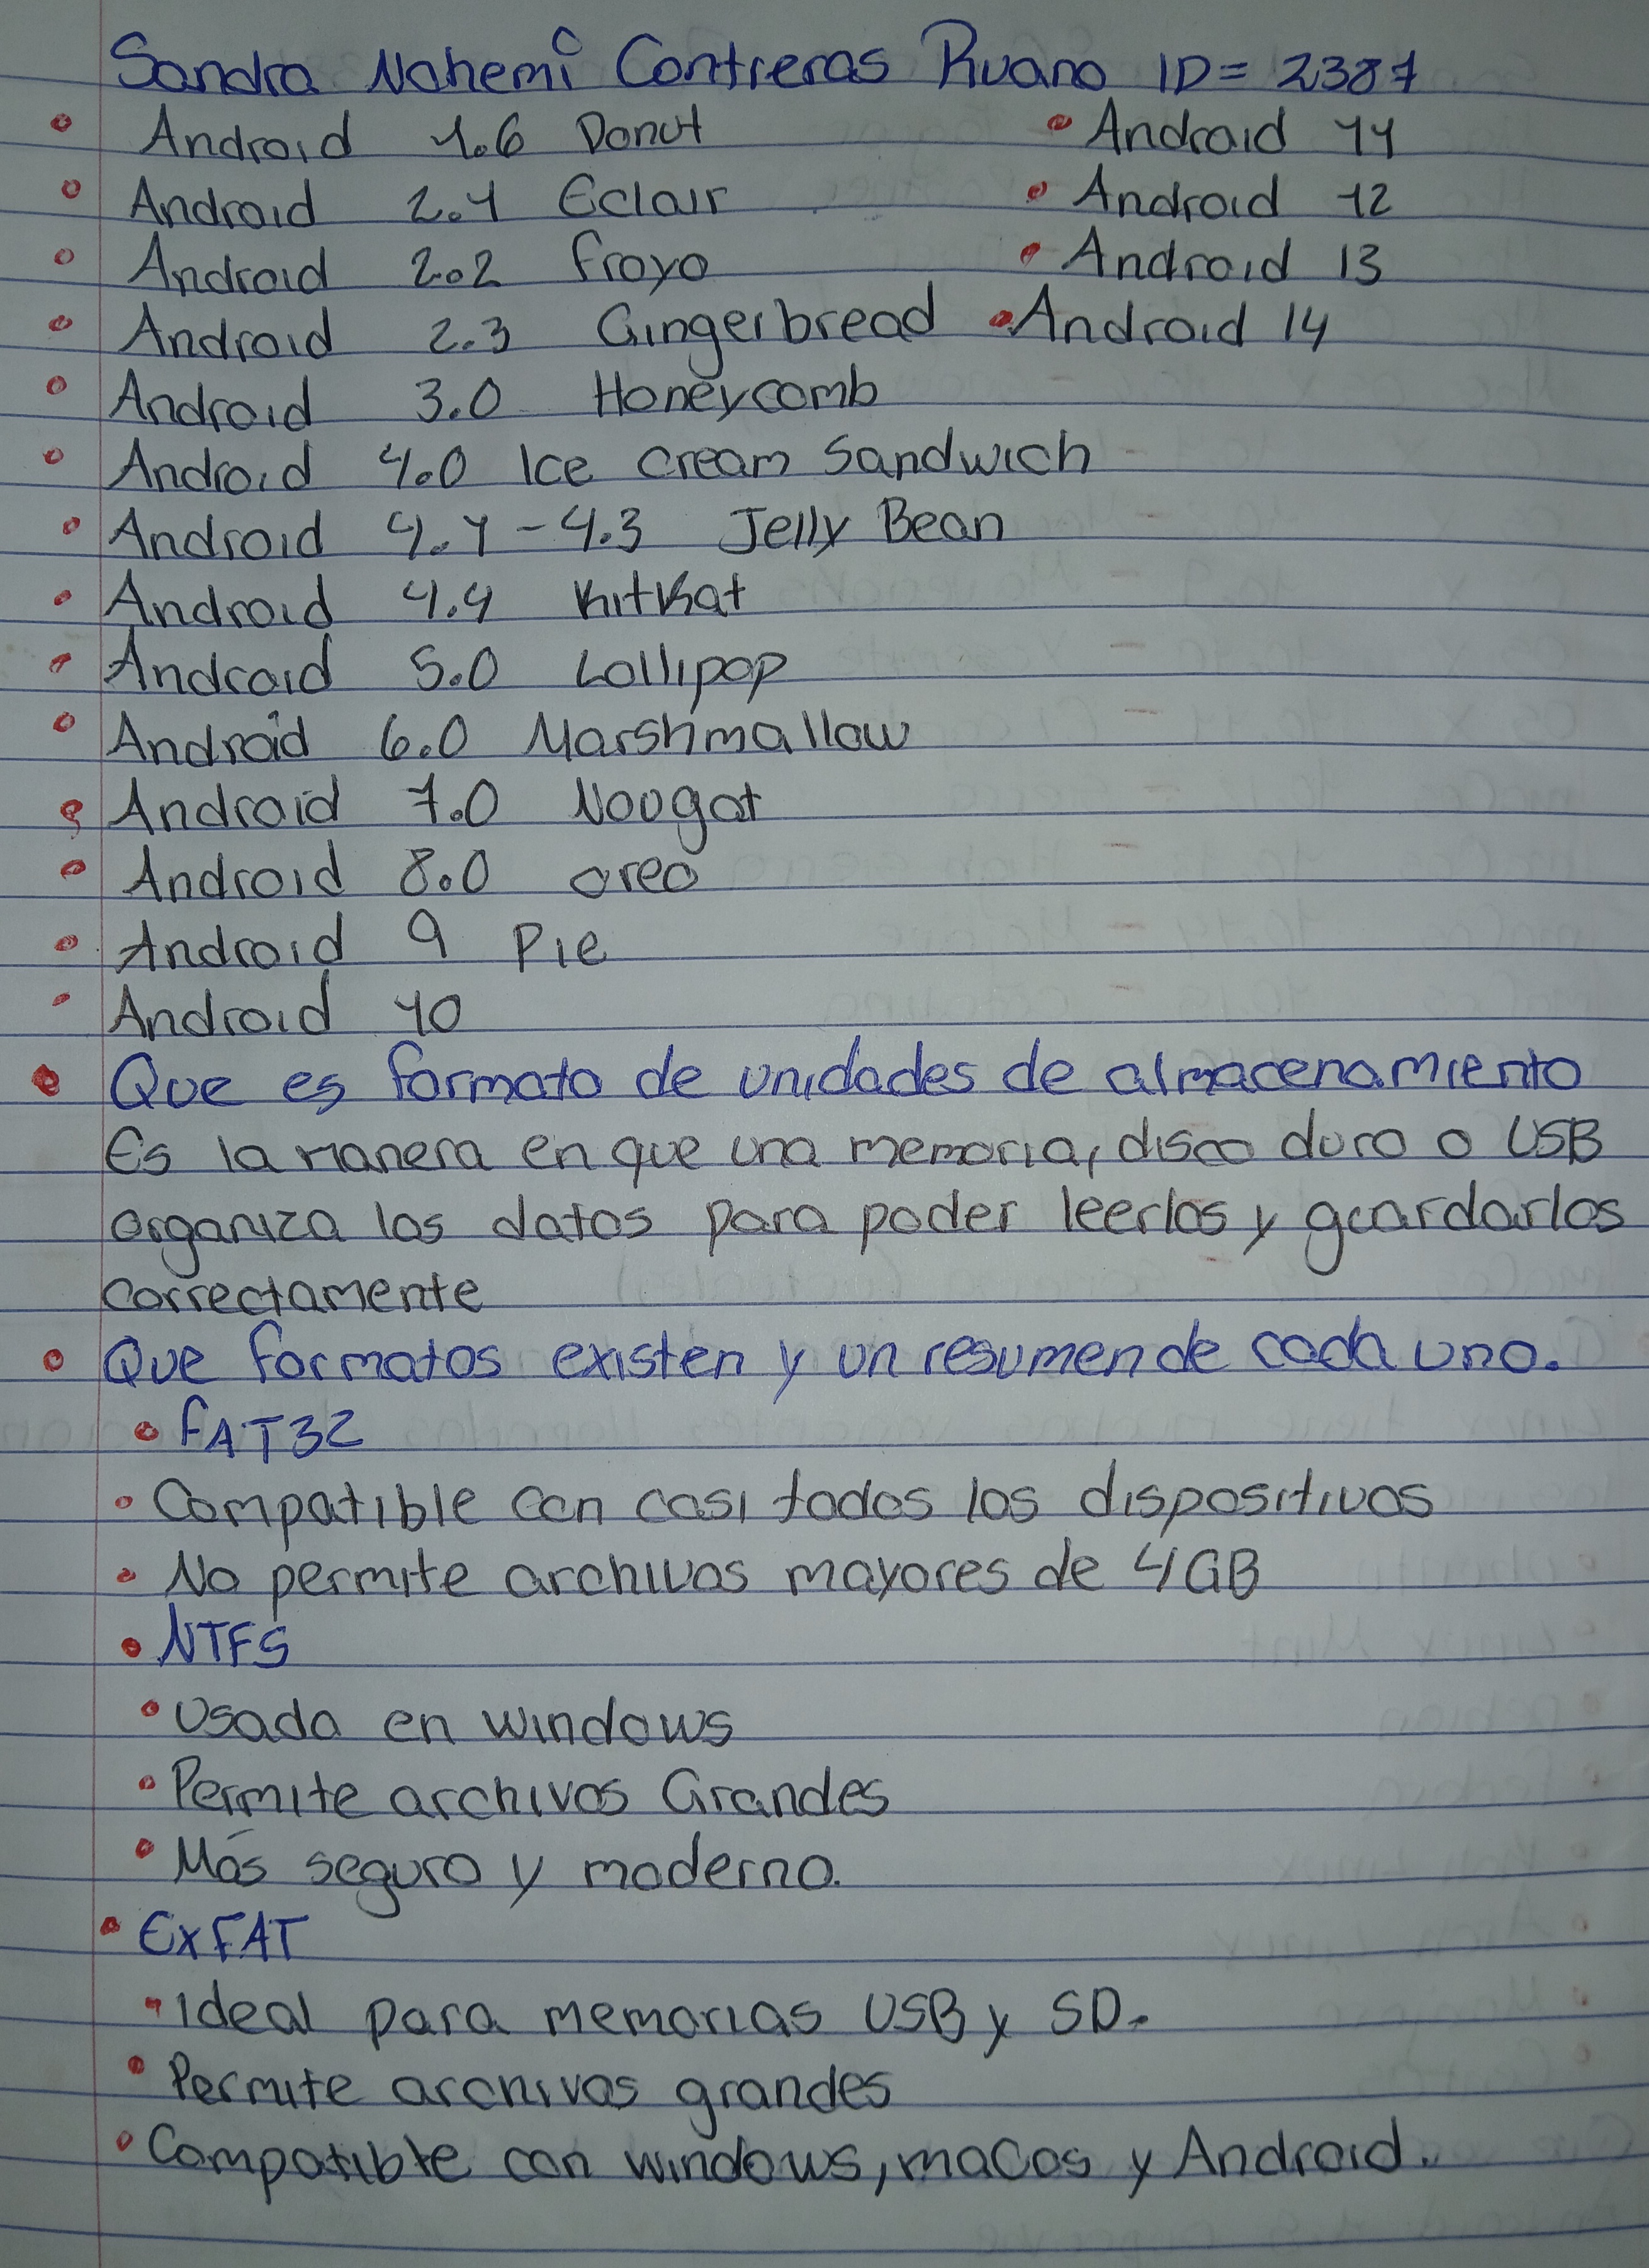 Sandra Nohemí Contreras Ruano ID= 2387
• Android 1.6 Donut
• Android 2.1 Eclair
• Android 2.2 froyo
• Android 2.3 Gingerbread
• Android 3.0 Honeycomb
• Android 4.0 Ice cream Sandwich
• Android 4.1-4.3 Jelly Bean
• Android 4.4 KitKat
• Android 5.0 Lollipop
• Android 6.0 Marshmallow
• Android 7.0 Nougat
• Android 8.0 oreo
• Android 9 Pie
• Android 10
• Android 11
• Android 12
• Android 13
• Android 14
• Que es formato de unidades de almacenamiento
Es la manera en que una memoria, disco duro o USB
organiza los datos para poder leerlos y guardarlos
correctamente
• Que formatos existen y un resumen de cada uno.
• FAT32
• Compatible con casi todos los dispositivos
• No permite archivos mayores de 4GB
• NTFS
• Usado en windows
• Permite archivos Grandes
• Más seguro y moderno.
• ExFAT
• Ideal para memorias USB y SD.
• Permite archivos grandes
• Compatible con windows, macos y Android.